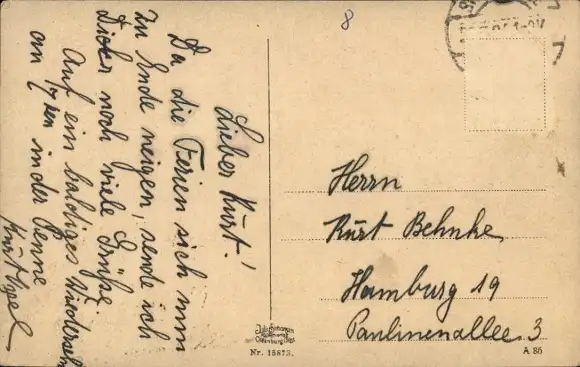 8
Lieber Kurt!
Da die Ferien sich nun
zu Ende neigen, sende ich
Dir noch viele Grüße
Auf ein baldiges Wiedersehn
am 7. ten in der Penne
Kurt
Herrn
Kurt Behnke
Hamburg 19
Paulinenallee 3
Nr. 15873.
A 86